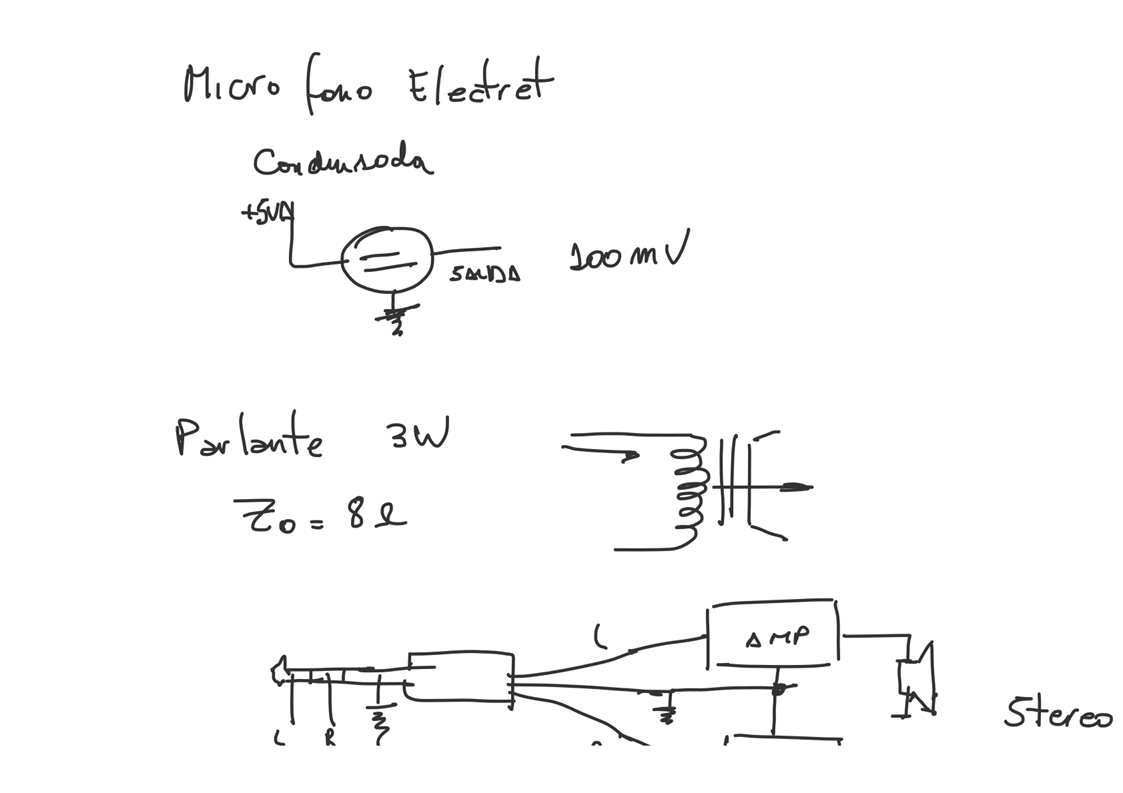 Microfono Electret
Condensoda
+5V
SALIDA 100mV
Parlante 3W
Zo = 8Ω
L
AMP
Stereo
L R